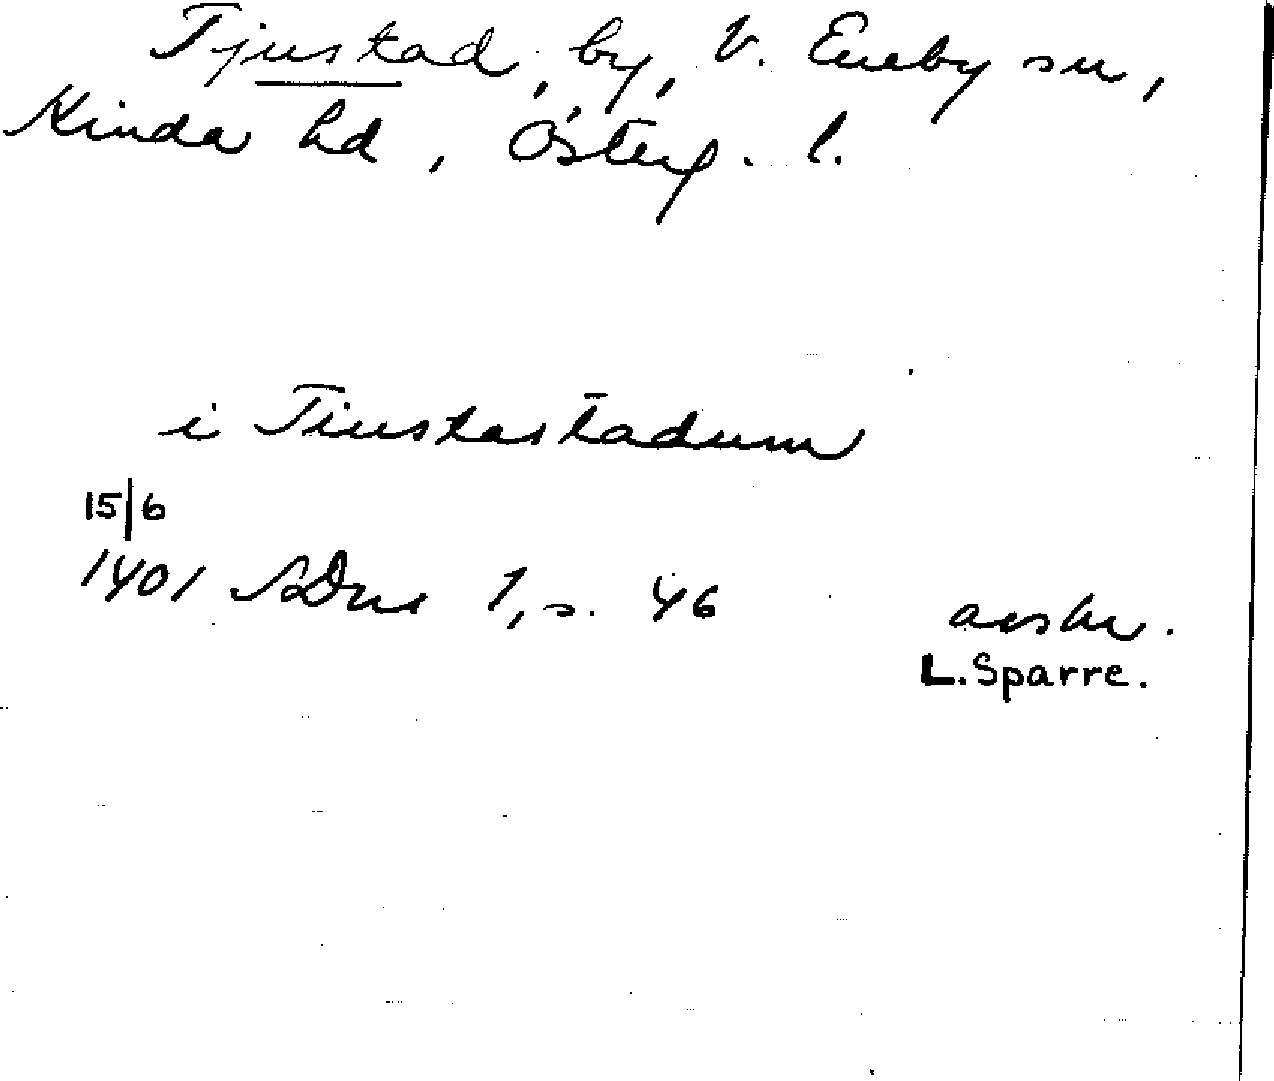 Tjustad, by, V. Eneby sn,
Kinda hd, Österg. l.
i Tiustastadum
15/6
1401 SDns 1, s. 46
avskr.
L. Sparre.